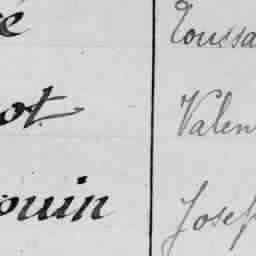 é Toussa
ot Valen
ouin Josep